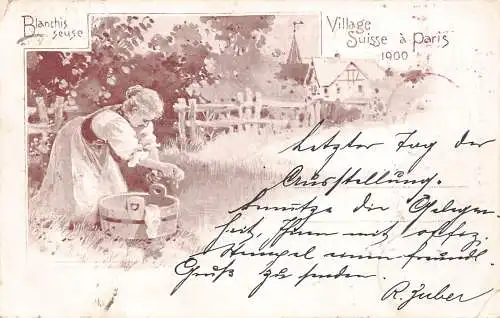 Blanchis
seuse
Village
Suisse à Paris
1900
Letzter Tag der
Ausstellung.
benutze die Gelegen
heit, Ihnen mit offiz.
Stempel einen freundl.
Gruß zu senden.
R. Zuber